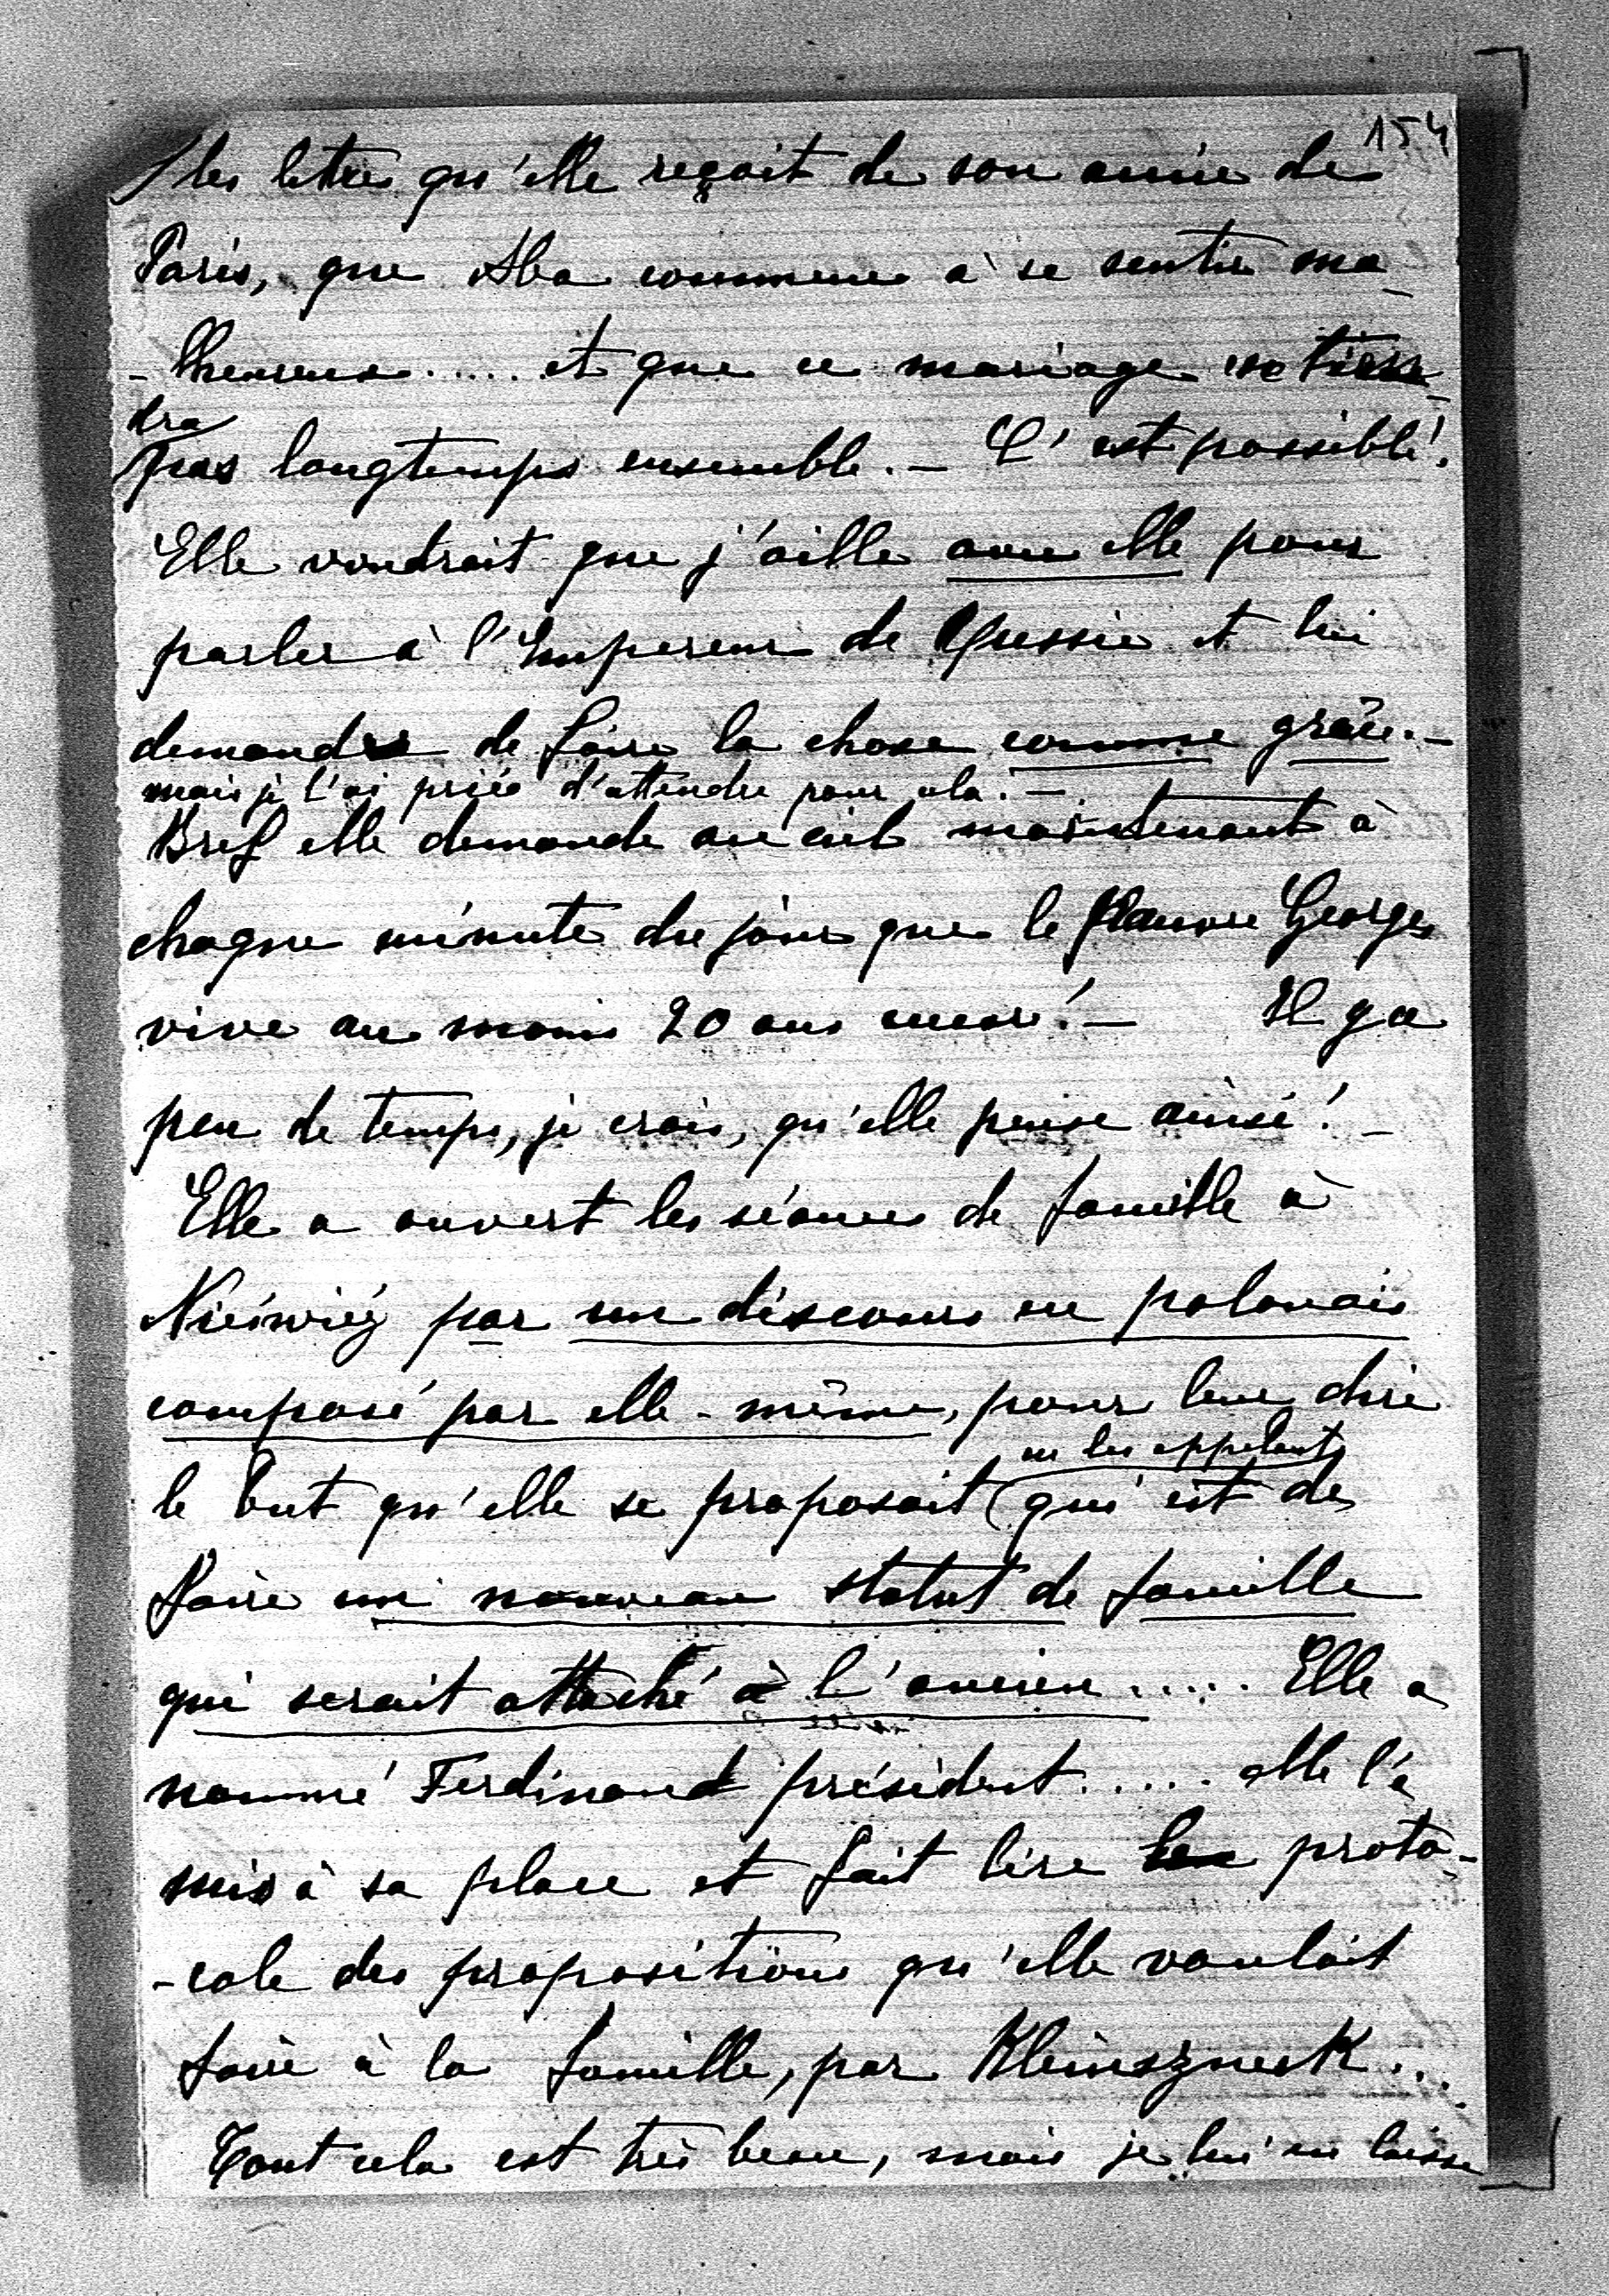 154
les lettres qu'elle reçoit de son amie de
Paris, que Aba commence à se sentir ma-
-lheureuse..... et que ce mariage ne tien-
dra
pas longtemps ensemble. - C'est possible!
Elle voudrait que j'aille avec elle pour
parler à l'Empereur de Russie et lui
demander de faire la chose comme grâce. -
mais je l'ai priée d'attendre pour cela. -
Bref elle demande au ciel maintenant à
chaque minute du jour que le pauvre Georges
vive au moins 20 ans encore! - Il y a
peu de temps, je crois, qu'elle pense ainsi! -
Elle a ouvert les séances de famille à
Nieświéz par un discours en polonais
composé par elle-même, pour leur dire
en les appelant
le but qu'elle se proposait (qui est de
faire un nouveau statut de famille
qui serait attaché à l'ancien ..... Elle a
nommé Ferdinand président ..... elle l'a
mis à sa place et fait lire le proto-
-cole des propositions qu'elle voulait
faire à la famille, par Kleinszneck...
Tout cela est très beau, mais je lui en laisse